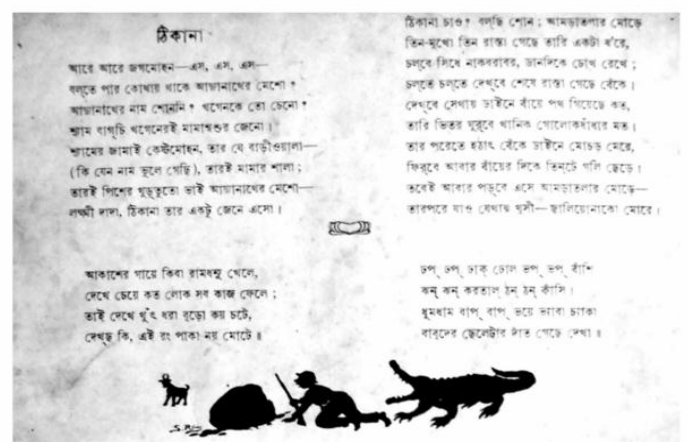 ঠিকানা
আরে আরে জগমোহন—এস, এস, এস—
বল্‌তে পার কোথায় থাকে আদ্যানাথের মেশো ?
আদ্যানাথের নাম শোননি ? খগেনকে তো চেনো ?
শ্যাম বাগ্‌চি খগেনেরই মামাশ্বশুর জেনো ।
শ্যামের জামাই কেষ্টমোহন, তার যে বাড়ীওয়ালা—
( কি যেন নাম ভুলে গেছি ), তারই মামার শালা ;
তারই পিশের খুড়্‌তুতো ভাই আদ্যানাথের মেশো—
লক্ষ্মী দাদা, ঠিকানা তার একটু জেনে এসো ।
ঠিকানা চাও ? বল্‌ছি শোন ; আমড়াতলার মোড়ে
তিন-মুখো তিন রাস্তা গেছে তারি একটা ধ'রে,
চল্‌বে সিধে নাকবরাবর, ডানদিকে চোখ রেখে ;
চল্‌তে চল্‌তে দেখ্‌বে শেষে রাস্তা গেছে বেঁকে ।
দেখ্‌বে সেথায় ডাইনে বাঁয়ে পথ গিয়েছে কত,
তারি ভিতর ঘুর্‌বে খানিক গোলোকধাঁধার মত ।
তার পরেতে হঠাৎ বেঁকে ডাইনে মোচড় মেরে,
ফির্‌বে আবার বাঁয়ের দিকে তিন্‌টে গলি ছেড়ে ।
তবেই আবার পড়্‌বে এসে আমড়াতলার মোড়ে—
তারপরে যাও যেথায় খুসী—জ্বালিয়োনাকো মোরে ।
আকাশের গায়ে কিবা রামধনু খেলে,
দেখে চেয়ে কত লোক সব কাজ ফেলে ;
তাই দেখে খুঁৎ ধরা বুড়ো কয় চটে,
দেখ্‌ছ কি, এই রং পাকা নয় মোটে ॥
ঢপ্ ঢপ্ ঢাক্ ঢোল ভপ্ ভপ্ বাঁশি
ঝন্ ঝন্ করতাল্ ঠন্ ঠন্ কাঁসি ।
ধুমধাম বাপ্ বাপ্ ভয়ে ভ্যাবা চ্যাকা
বাবুদের ছেলেটার দাঁত গেছে দেখা ॥